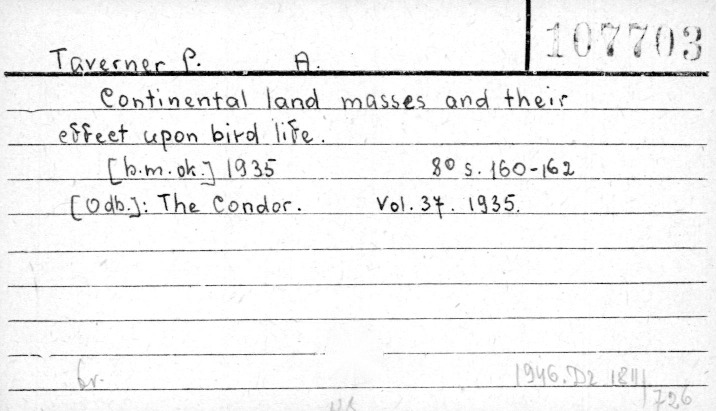 107703
Taverner P. A.
Continental land masses and their
effect upon bird life.
[b.m.ok.] 1935 8° s. 160-162
[Odb.]: The Condor. Vol. 37. 1935.
br.
1946. Dz 1811
726